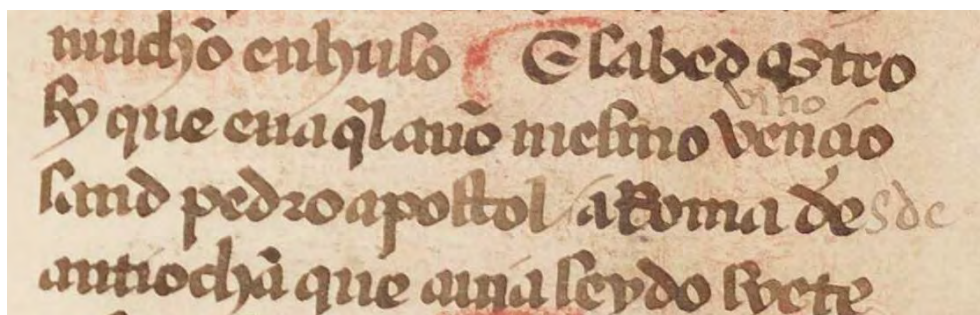 muchõ enhuso E sabed Otro
sy que enaq̃l auõ mesmo vencio vino
sand pedro apostol a Roma de sde
antiochã que auia seydo syete